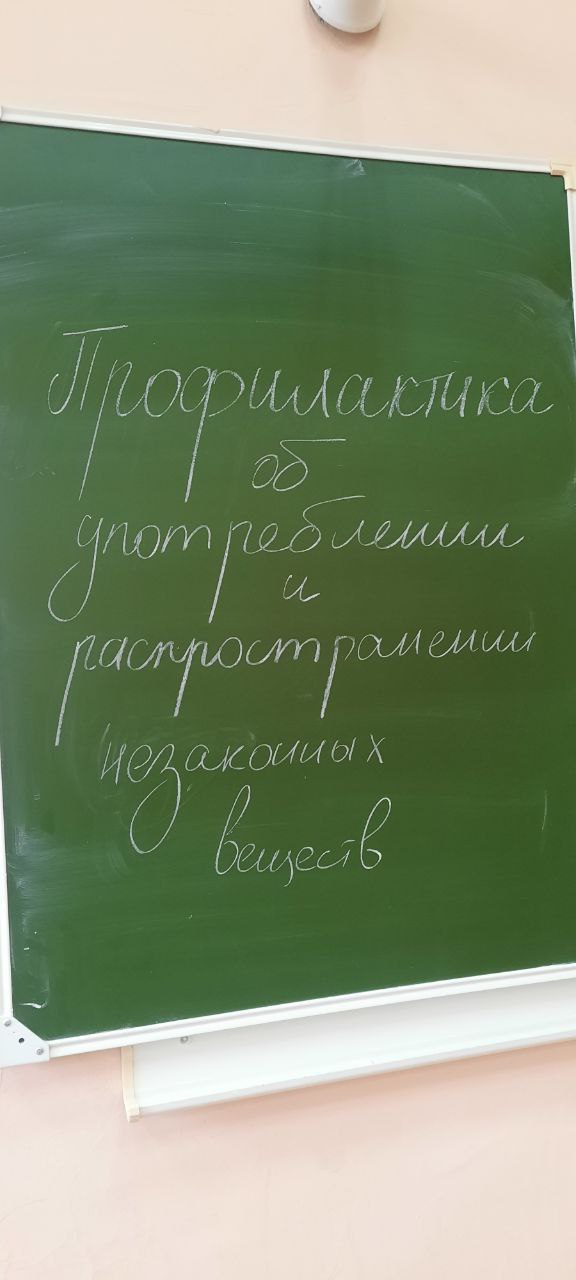 Профилактика
об
употреблении
и
распространении
незаконных
веществ